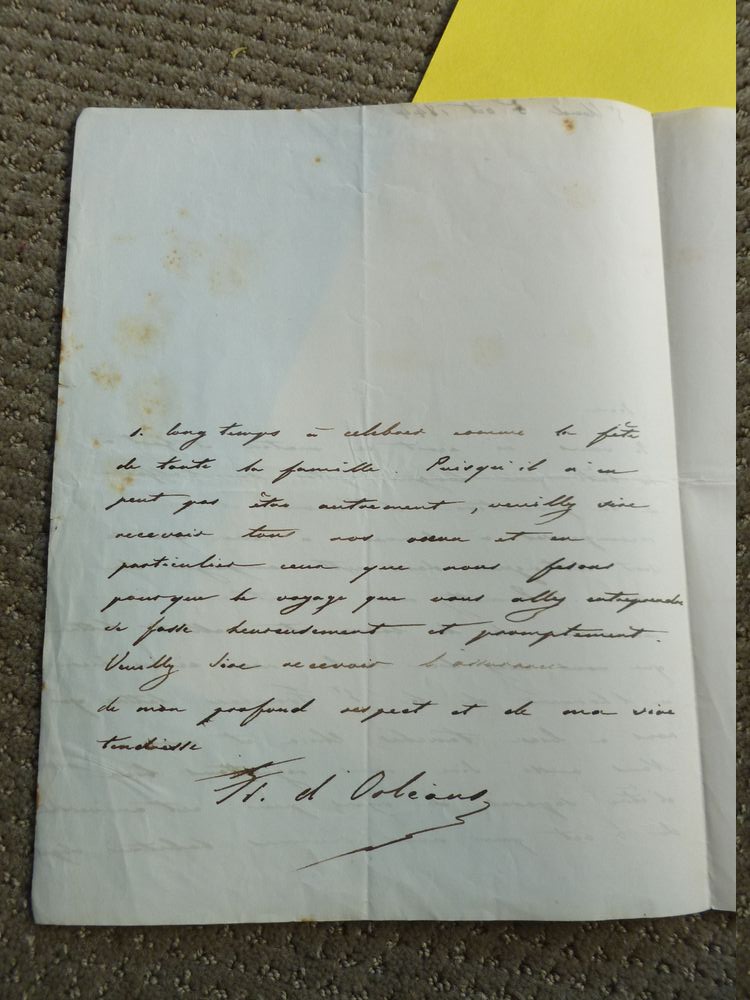 si long temps à celebrer comme la fête
de toute la famille. Puisqu'il n'en
peut pas être autrement, veuilly sire
recevoir tous nos vœux et en
particulier ceux que nous fesons
pour que le voyage que vous allez entreprendre
se fasse heureusement et promptement.
Veuilly Sire recevoir l'assurance
de mon profond respect et de ma vive
tendresse
Fr. d'Orléans